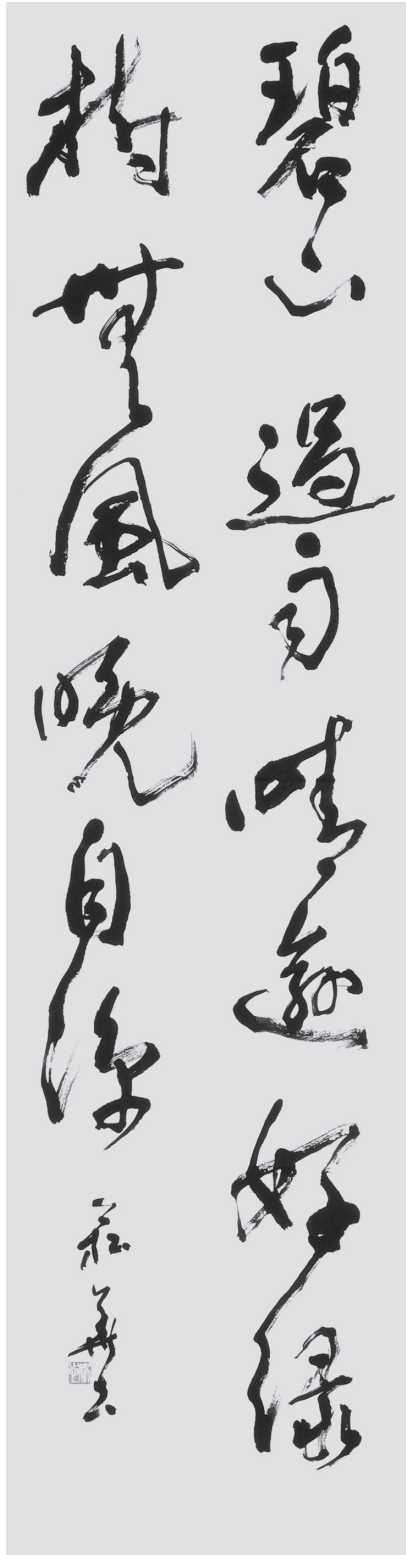 碧山過雨晴逾好緑
樹無風晩自涼